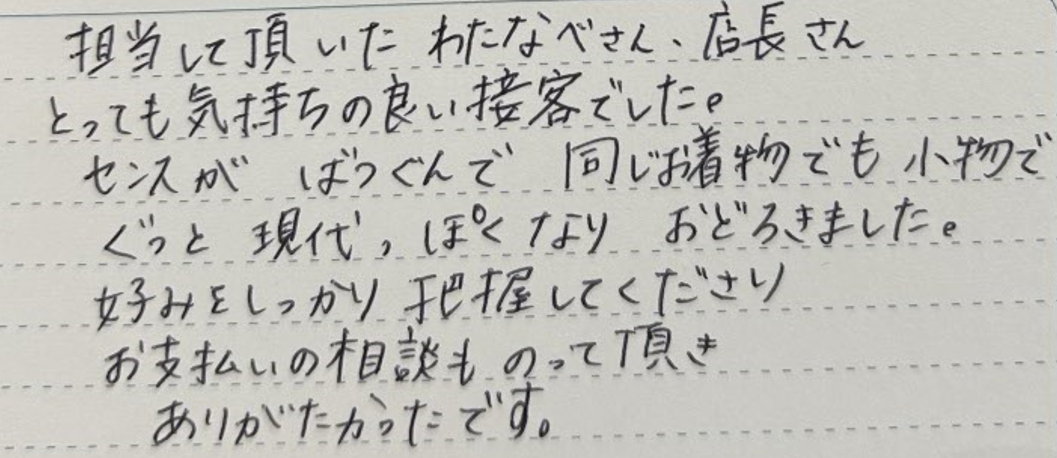 担当して頂いた わたなべさん、店長さん
とっても気持ちの良い接客でした。
センスが ばつぐんで 同じお着物でも 小物で
ぐっと 現代っぽくなり おどろきました。
好みをしっかり把握してくださり
お支払いの相談も のって頂き
ありがたかったです。